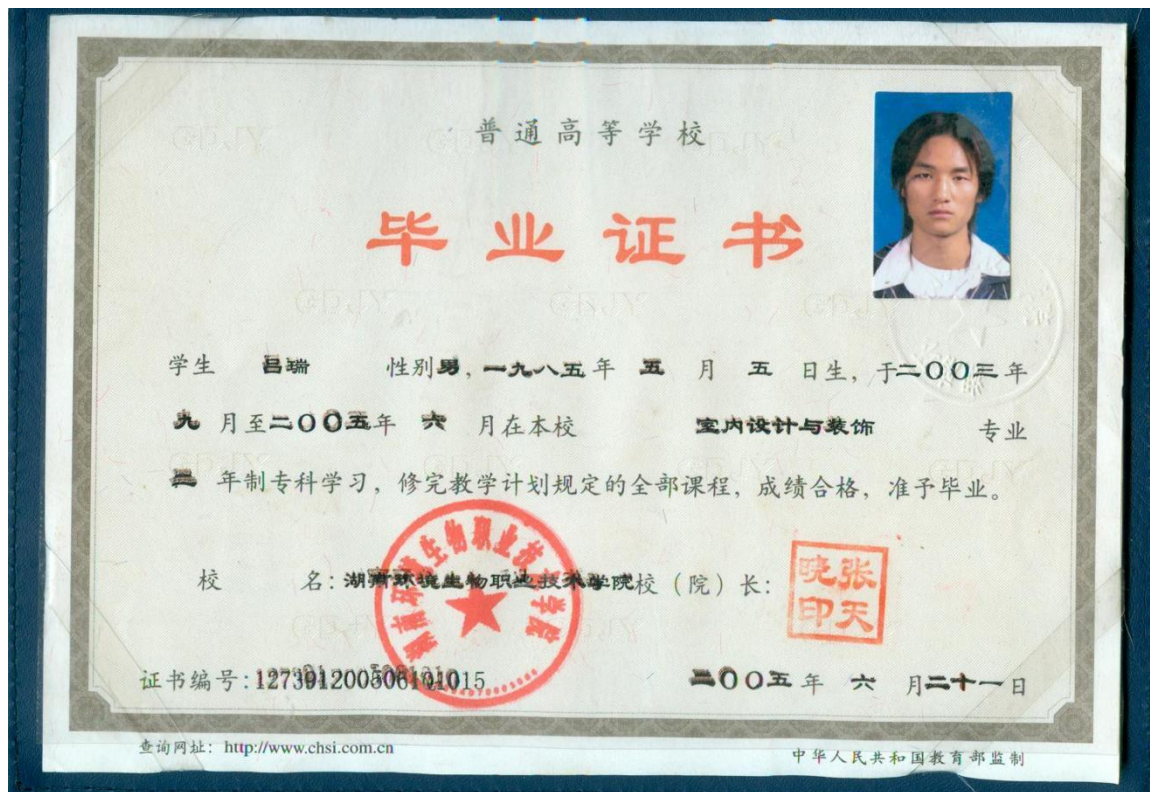 普通高等学校
毕业证书
学生 吕瑞 性别男，一九八五年 五 月 五 日生，于二〇〇三年
九 月至二〇〇五年 六 月在本校 室内设计与装饰 专业
年制专科学习，修完教学计划规定的全部课程，成绩合格，准予毕业。
校 名：湖南环境生物职业技术学院校（院）长：
张天晓印
湖南环境生物职业技术学院
证书编号：127391200506101015
二〇〇五 年 六 月二十一日
查询网址：http://www.chsi.com.cn
中华人民共和国教育部监制